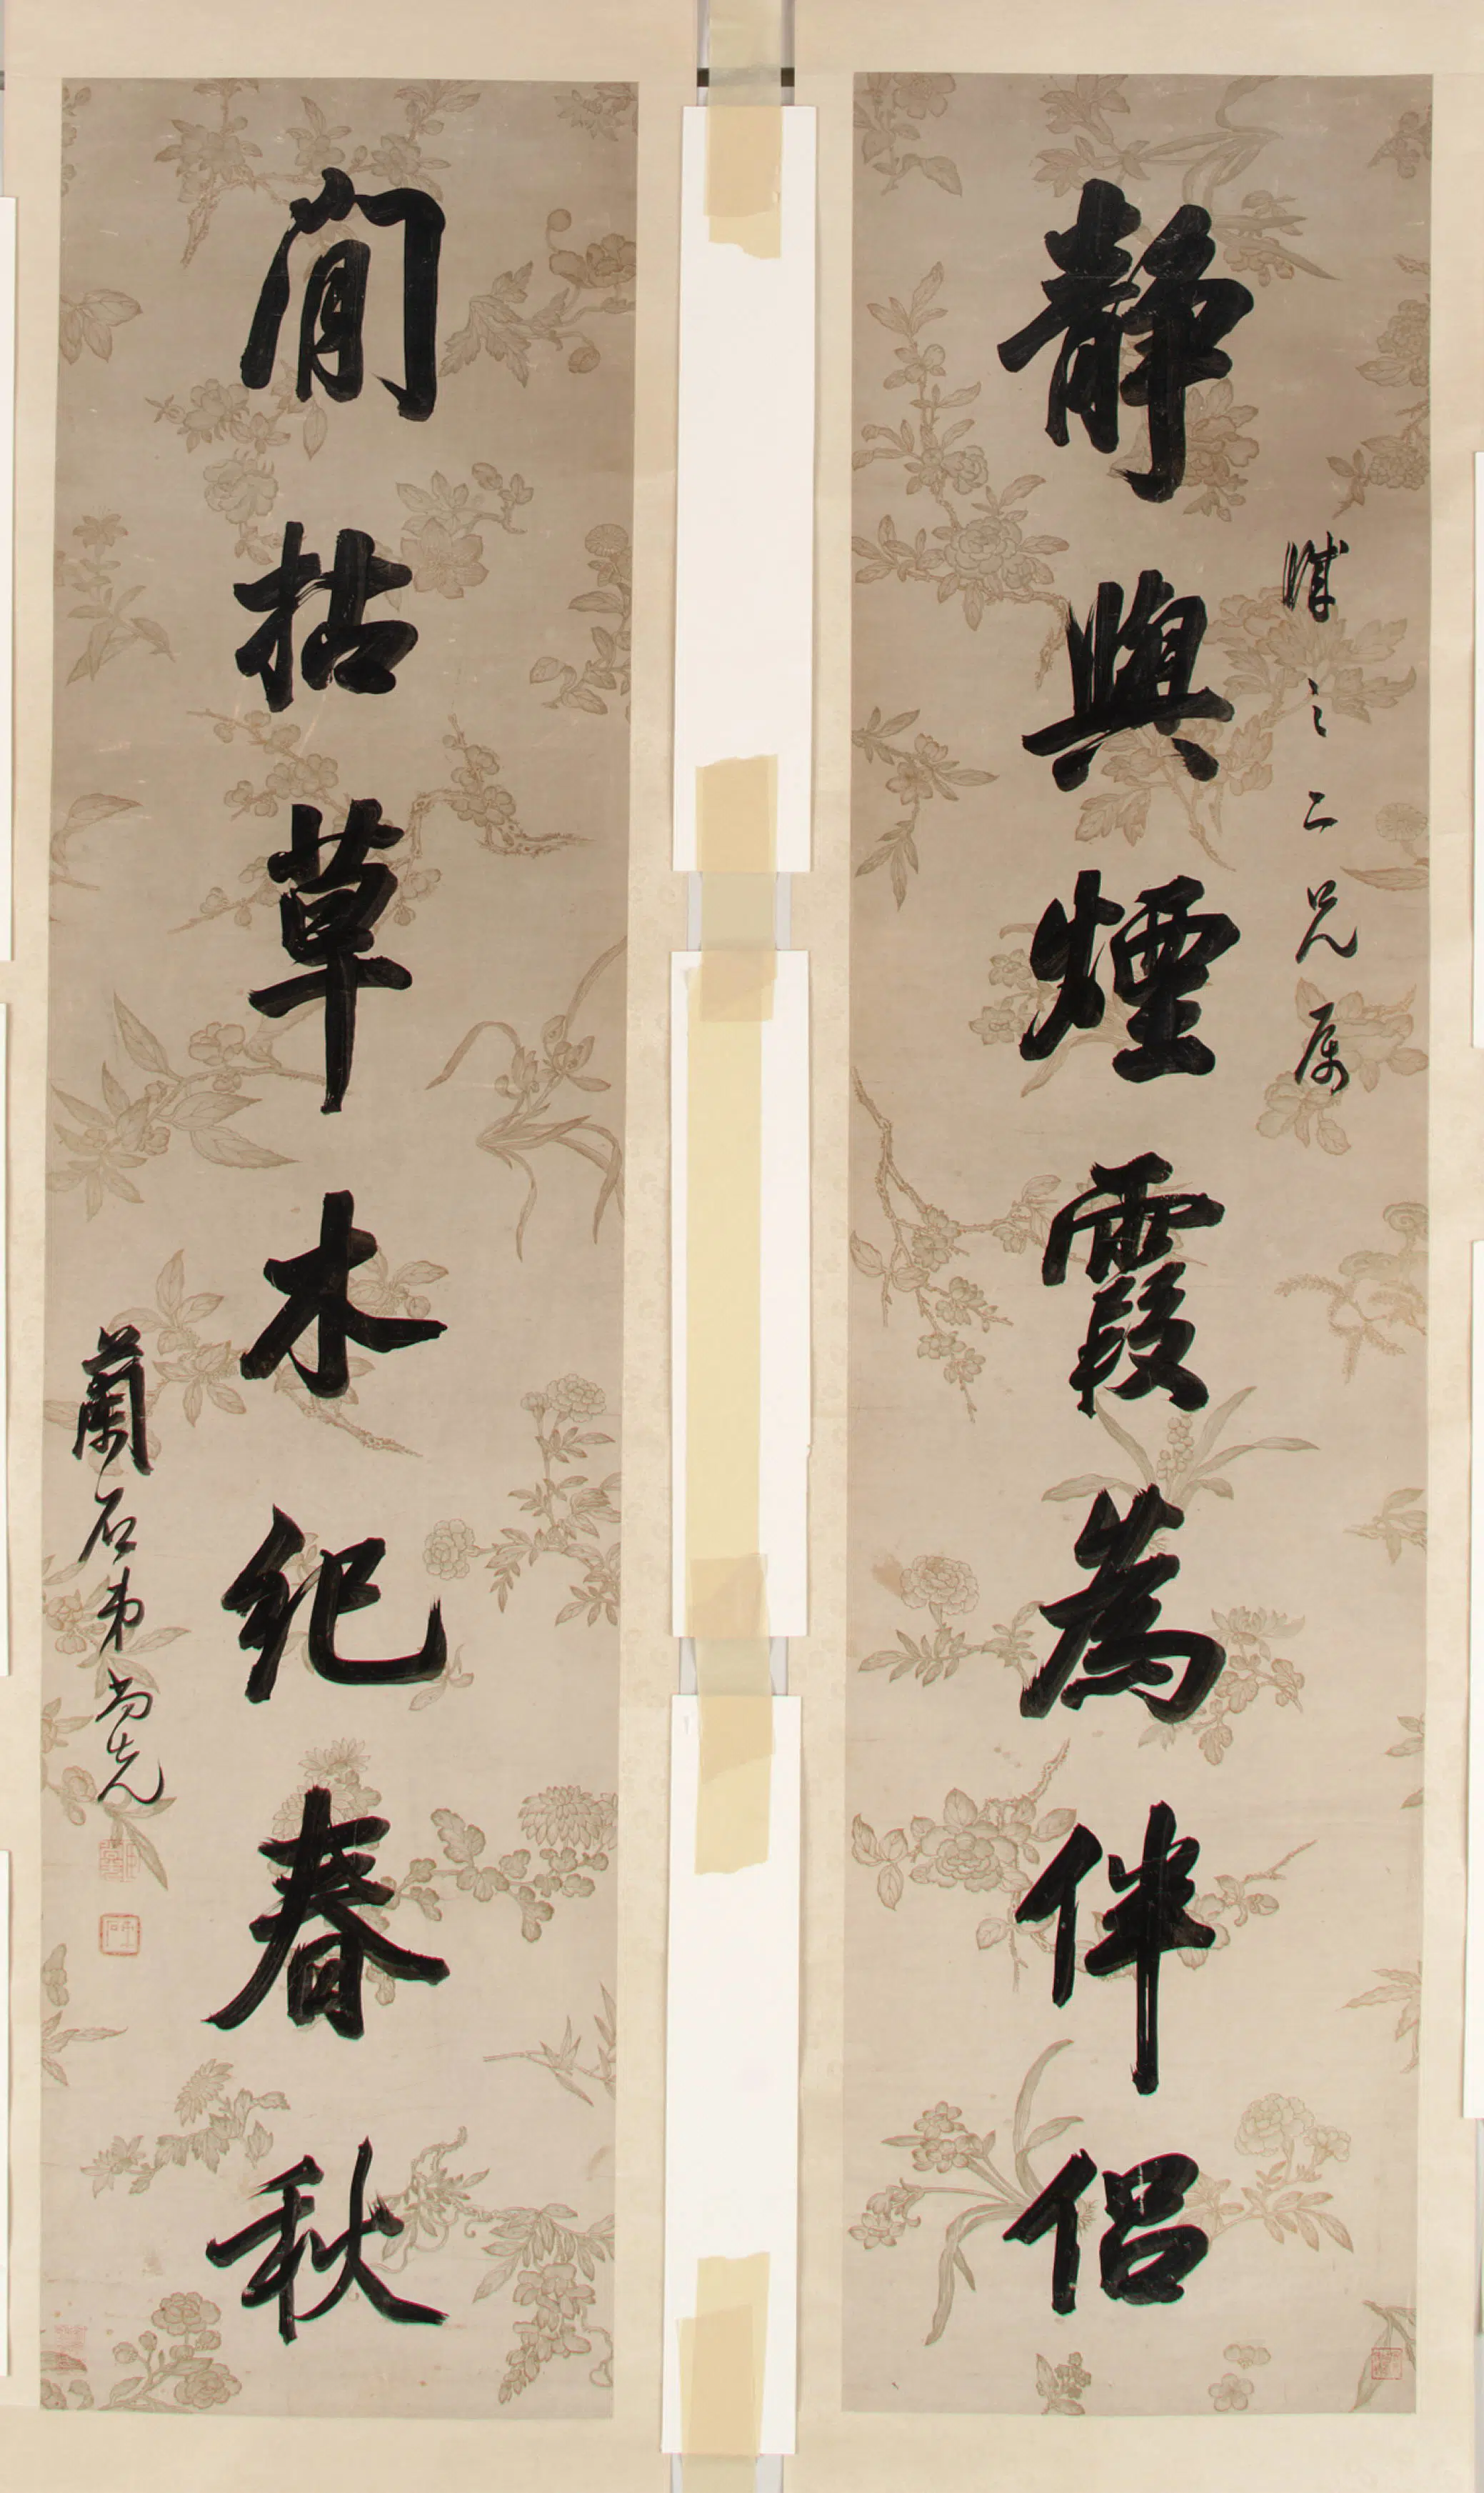 静與煙霞為伴侶
之二兄属
閒拈草木紀春秋
蘭石弟尚先